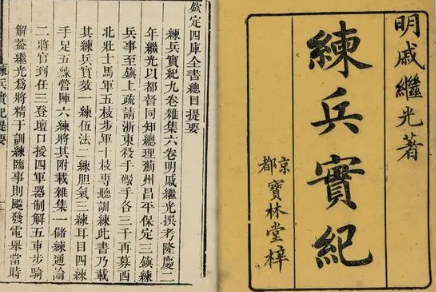 明戚繼光著
練兵實紀
京都寶林堂梓
欽定四庫全書總目提要
練兵實紀九卷雜集六卷明戚繼光撰考隆慶二
年繼光以都督同知總理薊州昌平保定三鎮練
兵事至鎮上疏請浙東殺手礮手各三千再募西
北壯士馬軍五枝步軍十枝專聽訓練此書乃載
其練兵實效一練伍法二練胆氣三練耳目四練
手足五練營陣六練將其附載雜集一儲練通論
二將官到任三登壇口授四軍器制解五車步騎
解蓋繼光為將精于訓練臨事則飈發電舉當時
練兵實紀提要